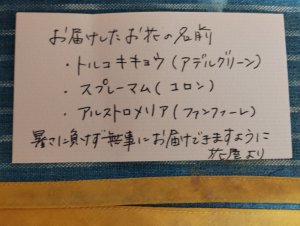 お届けしたお花の名前
・トルコキキョウ(アデルグリーン)
・スプレーマム(コロン)
・アルストロメリア(ファンファーレ)
暑さに負けず無事にお届けできますように
花屋より